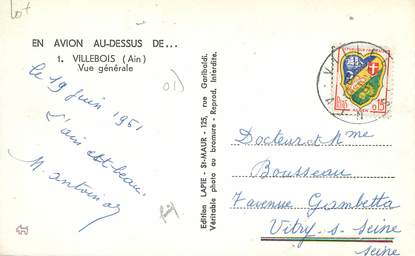 Lot
EN AVION AU-DESSUS DE...
1. VILLEBOIS (Ain)
Vue générale
01)
le 19 juin 1961
L'ain est beau
M. antoinos
Edition LAPIE - St-MAUR - 125, rue Garibaldi.
Véritable photo au bromure - Reprod. Interdite.
REPUBLIQUE FRANÇAISE
0,15
Docteur et Mme
Bousseau
7 avenue Gambetta
Vitry-s-Seine
Seine